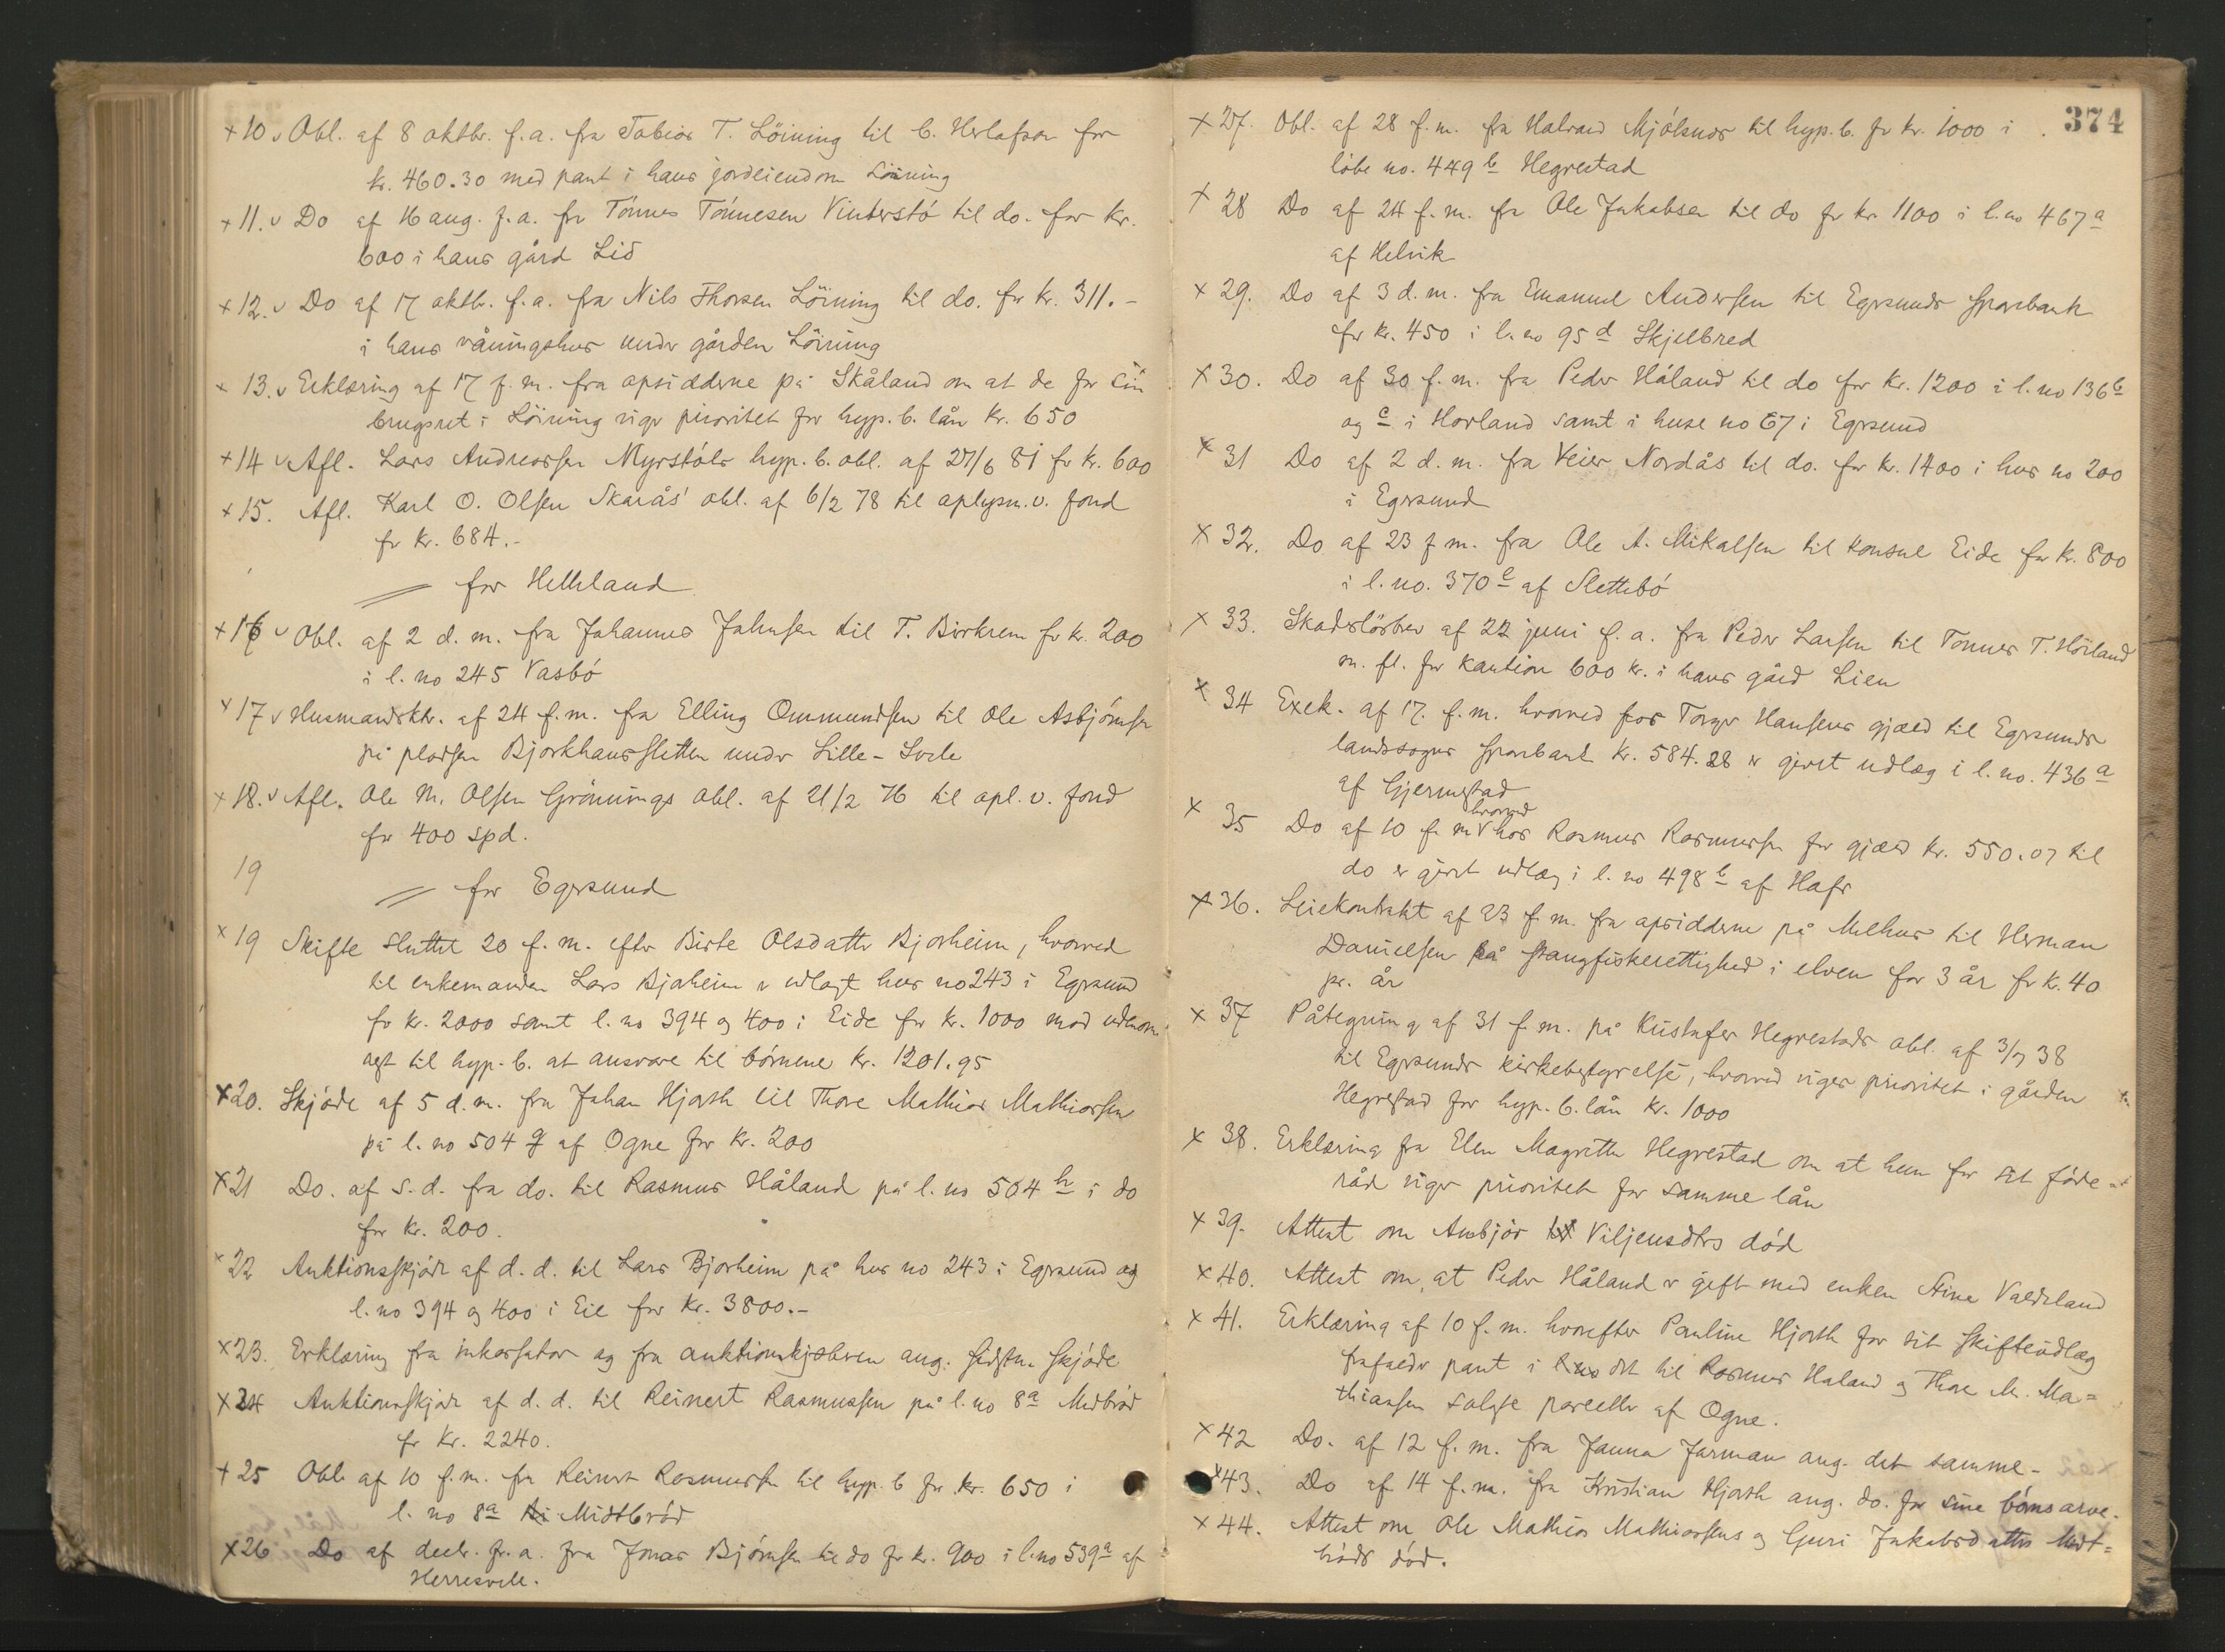 +10. v Obl. af 8 oktbr. f.a. fra Tobias T. Löining til C. Herlofson for
kr. 460.30 med pant i hans jordeiendom Löining
+11. v Do af 16 aug. f.a. fr Tönnes Tönnesen Vinterstö til do. for kr.
600 i hans gård Lid
+12. v Do af 17 oktb. f.a. fra Nils Thorsen Löining til do. for kr. 311.-
i hans våningshus under gården Löining
+ 13. v Erklæring af 17 f.m. fra opsidderne på Skåland om at de for sin
brugsret i Löining viger prioritet for hyp. b. lån kr. 650
+14 v Afl. Lars Andreassen Myrstöls hyp. b. obl. af 27/6 81 fr kr. 600
+15. Afl. Karl O. Olsen Skarås' obl. af 6/2 78 til oplysn. v. fond
fr kr. 684.-
= for Helleland
+16 v Obl. af 2 d.m. fra Johannes Johnsen til T. Birkrem fr kr. 200
i l. no 245 Vasbö
+17 v Husmandsktr. af 24 f.m. fra Elling Ommundsen til Ole Asbjörnsen
på pladsen Bjorkhausslitten under Lille-Svele
+18. v Afl. Ole M. Olsen Grönnings obl. af 21/2 76 til opl. v. fond
for 400 spd.
19
= for Egersund
x 19 Skifte sluttet 20 f.m. efter Birte Olsdatter Bjorheim, hvorved
til enkemanden Lars Bjorheim er udlagt hus no 243 i Egersund
for kr. 2000 samt l. no 394 og 400 i Eide for kr. 1000 mod udenom
regt til hyp. b. at ansvare til börnene kr. 1201.95
x20. Skjöde af 5 d.m. fra Johan Hjorth til Thore Mathias Mathiassen
på l. no 504 g af Ogne for kr. 200
x21 Do. af s.d. fra do. til Rasmus Håland på l. no 504 h i do
for kr. 200.
x22 Auktionsskjöde af d.d. til Lars Bjorheim på hus no 243 i Egersund og
l. no 394 og 400 i Eie for kr. 3800.-
x23. Erklæring fra inkassator og fra auktionskjöberen ang. sidstn. skjöde
x24 Auktionsskjöde af d.d. til Reinert Rasmussen på l. no 8a Midbröd
fr kr. 2240.
+25 Obl. af 10 f.m. fra Reinert Rasmussen til hyp. b for kr. 650 i
l. no 8a Midtbröd
x26 Do af decbr. f.a. fra Jonas Björnsen til do fr kr. 900 i l. no 539a af
Herresvele.
374
x27. Obl. af 28 f.m. fra Halvard Mjölsnes til hyp. b. fr kr. 1000 i
löbe no. 449b Hegrestad
x 28 Do af 24 f.m. fra Ole Jakobsen til do fr kr 1100 i l. no 467a
af Helvik
x 29. Do af 3 d.m. fra Emanuel Andersen til Egersunds sparebank
for kr. 450 i l. no 95d Skjelbred
x 30. Do af 30 f.m. fra Peder Håland til do for kr. 1200 i l. no 136b
og c i Horland samt i huse no 67 i Egersund
x 31 Do af 2 d.m. fra Veier Nordås til do. for kr. 1400 i hus no 200
i Egersund
x 32. Do af 23 f m. fra Ole A. Mikalsen til konsul Eide for kr. 800
i l. no. 370e af Slettebö
x 33. Skadeslösbrev af 22 juni f.a. fra Peder Larsen til Tönnes T. Hörland
m. fl. for kaution 600 kr. i hans gård Lien
x 34 Exek. af 17. f.m. hvorved hos Torger Hansens gjæld til Egersunds
landssogns sparebank kr. 584.28 er gjort udlæg i l. no. 436a
af Gjermestad
hvorved
x 35 Do af 10 f. m v hos Rasmus Rasmussen for gjæld kr. 550.07 til
do er gjort udlæg i l. no 498b af Hafr
x36. Leiekontrakt af 23 f.m. fra opsidderne på Melhus til Herman
Danielsen på stangfiskerettighed i elven for 3 år fr kr. 40
pr. år
x 37 Påtegning af 31 f.m. på Kristofer Hegrestads obl. af 3/7 38
til Egersunds kirkebestyrelse, hvorved viges prioritet i gården
Hegrestad for hyp. b. lån kr. 1000
x 38. Erklæring fra Elen Magrethe Hegrestad om at hun for sit föde-
råd viger prioritet for samme lån
x 39. Attest om Anbjör Viljensdtrs död
x 40. Attest om, at Peder Håland er gift med enken Stine Vadsland
x 41. Erklæring af 10 f.m. hvorefter Pauline Hjorth for sit skifteudlæg
frafalder pant i det til Rasmus Håland og Thore M. Ma=
thiassen solgte parceller af Ogne.
x42 Do. af 12 f.m. fra Janna Jarman ang. det samme-
x43. Do af 14 f.m. fra Kristian Hjorth ang. do. for sine börns arve.
x 44. Attest om Ole Mathias Mathiassens og Guri Jakobsdatters Midt=
bröds död.